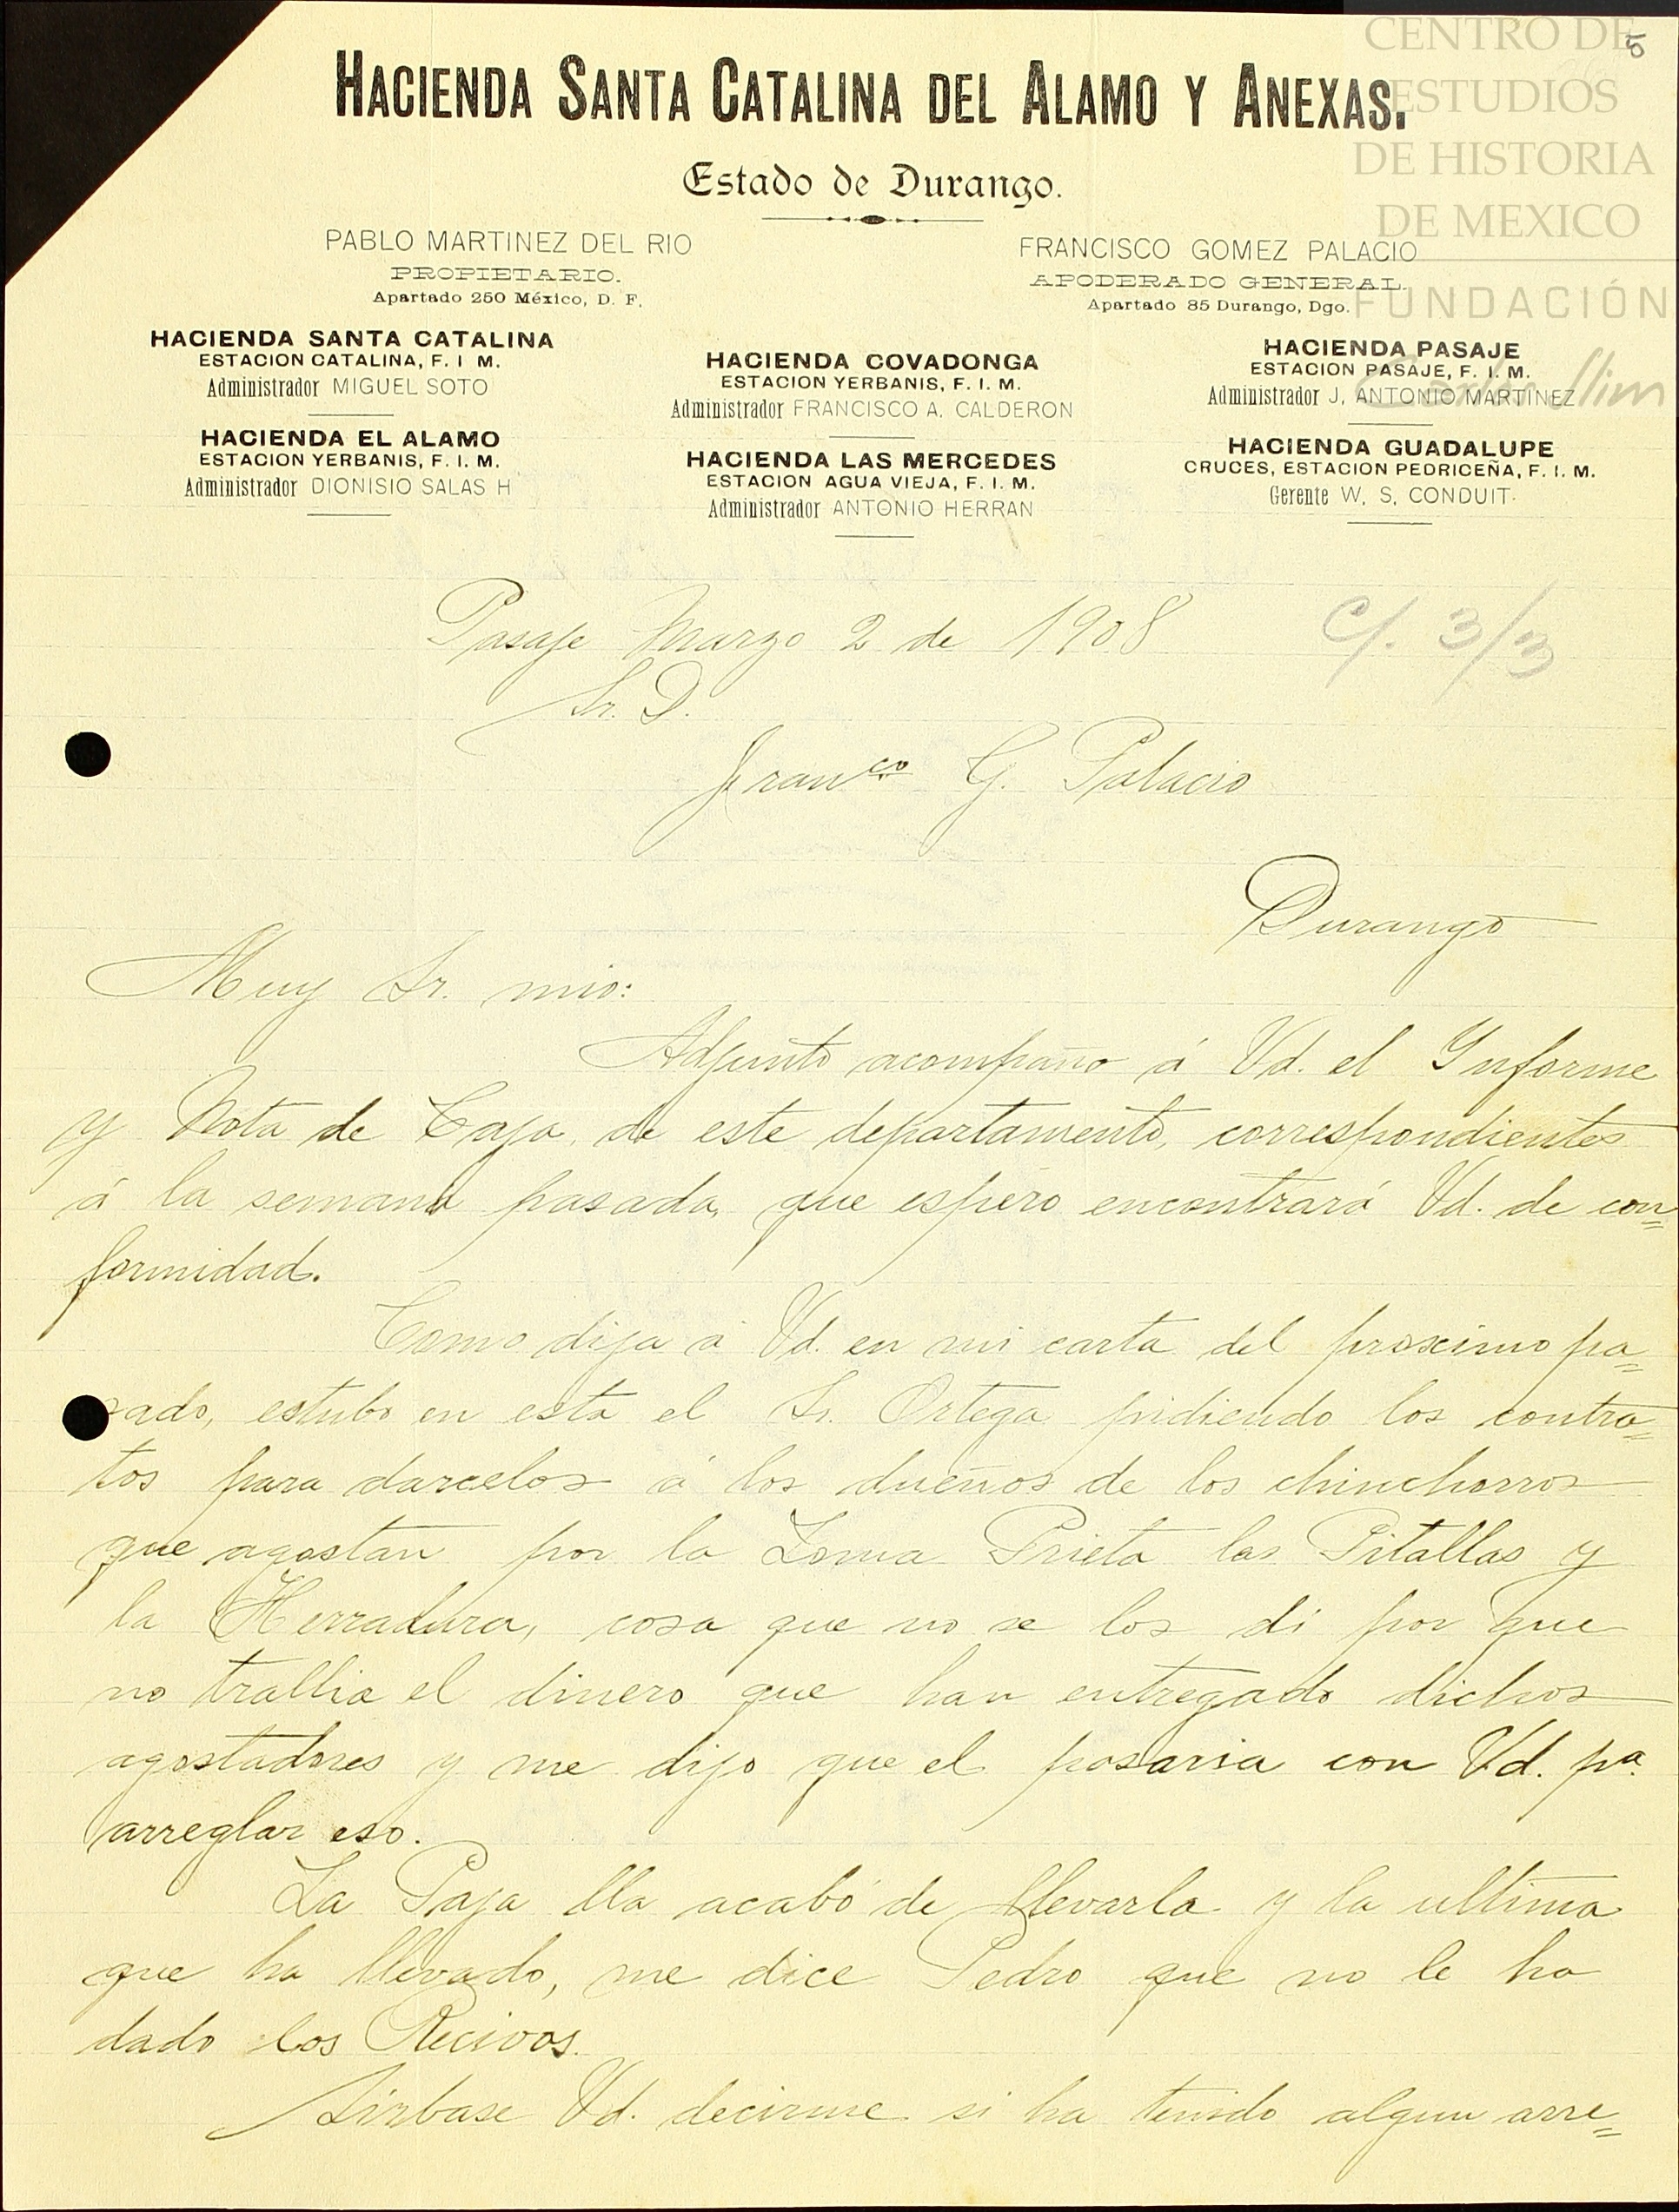 CENTRO DE
ESTUDIOS
DE HISTORIA
DE MEXICO
FUNDACIÓN
Carlos Slim
5
HACIENDA SANTA CATALINA DEL ALAMO Y ANEXAS.
Estado de Durango.
PABLO MARTINEZ DEL RIO
PROPIETARIO.
Apartado 250 México, D. F.
FRANCISCO GOMEZ PALACIO
APODERADO GENERAL.
Apartado 85 Durango, Dgo.
HACIENDA SANTA CATALINA
ESTACION CATALINA, F. I M.
Administrador MIGUEL SOTO
HACIENDA EL ALAMO
ESTACION YERBANIS, F. I. M.
Administrador DIONISIO SALAS H
HACIENDA COVADONGA
ESTACION YERBANIS, F. I. M.
Administrador FRANCISCO A. CALDERON
HACIENDA LAS MERCEDES
ESTACION AGUA VIEJA, F. I. M.
Administrador ANTONIO HERRAN
HACIENDA PASAJE
ESTACION PASAJE, F. I. M.
Administrador J. ANTONIO MARTINEZ
HACIENDA GUADALUPE
CRUCES, ESTACION PEDRICEÑA, F. I. M.
Gerente W. S. CONDUIT.
Pasaje Marzo 2 de 1908
C/. 3/3
Sr. D.
Franco G. Palacio
Durango
Muy Sr. mio:
Adjunto acompaño á Vd. el Informe
y Nota de Caja, de este departamento, correspondientes
á la semana pasada, que espero encontrará Vd. de con=
formidad.
Como dija á Vd. en mi carta del proximo pa=
sado, estubo en esta el Sr. Ortega pidiendo los contra=
tos para darcelos á los dueños de los chinchorros
que agostan por la Loma Prieta las Pitallas y
la Herradura, cosa que no se los di por que
no trallia el dinero que han entregado dichos
agostadores y me dijo que el pasaria con Vd. pa.
arreglar eso.
La Paja lla acabó de llevarla y la ultima
que ha llevado, me dice Pedro que no le ha
dado los Recivos.
Sirbase Vd. decirme si ha tenido algun arre=